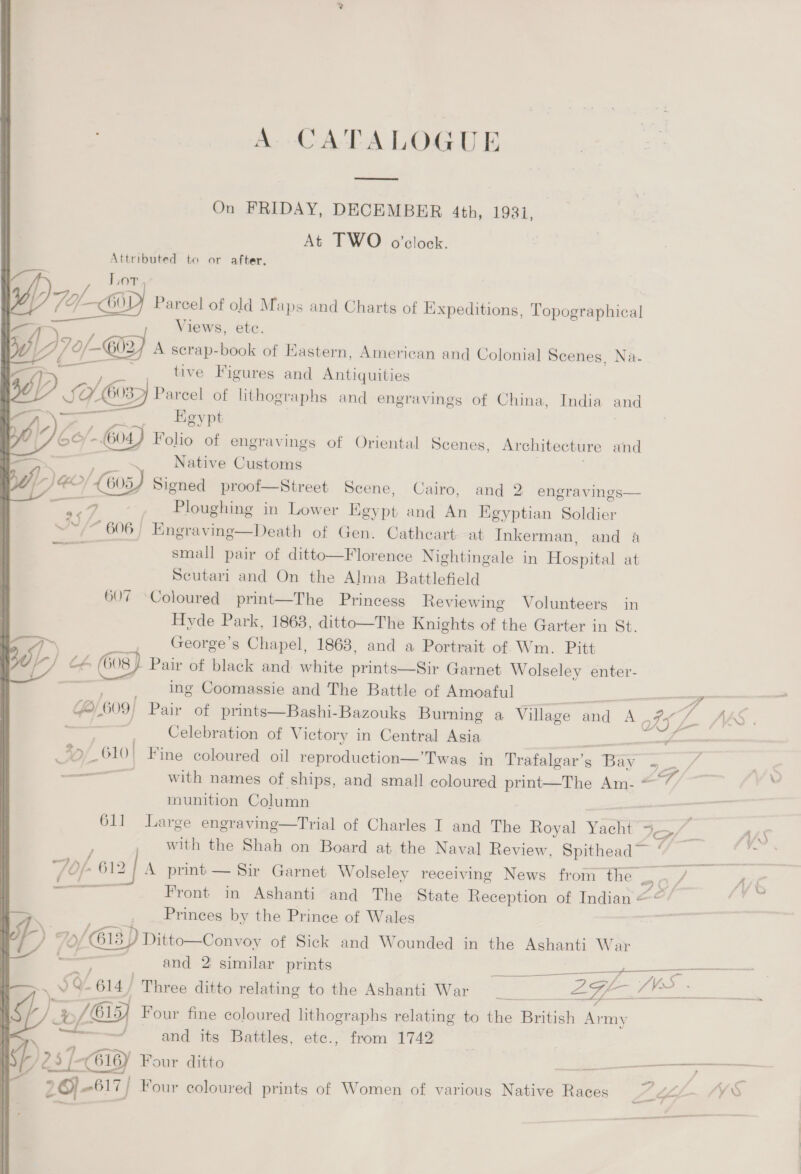 A CATALOGUE
On FRIDAY, DECEMBER 4th, 1931,
At TWO o'clock.
Attributed to or after.
LOT
70/- 601 Parcel of old Maps and Charts of Expeditions, Topographical
Views, etc.
70/- 602 A scrap-book of Eastern, American and Colonial Scenes, Na-
tive Figures and Antiquities
50/ 603 Parcel of lithographs and engravings of China, India and
Egypt
60/- 604 Folio of engravings of Oriental Scenes, Architecture and
Native Customs
40/ 605 Signed proof—Street Scene, Cairo, and 2 engravings—
Ploughing in Lower Egypt and An Egyptian Soldier
606 Engraving—Death of Gen. Cathcart at Inkerman, and a
small pair of ditto—Florence Nightingale in Hospital at
Scutari and On the Alma Battlefield
607 Coloured print—The Princess Reviewing Volunteers in
Hyde Park, 1863, ditto—The Knights of the Garter in St.
George's Chapel, 1863, and a Portrait of Wm. Pitt
608 Pair of black and white prints—Sir Garnet Wolseley enter-
ing Coomassie and The Battle of Amoaful
609 Pair of prints—Bashi-Bazouks Burning a Village and A
Celebration of Victory in Central Asia
30/- 610 Fine coloured oil reproduction—'Twas in Trafalgar's Bay
with names of ships, and small coloured print—The Am-
munition Column
611 Large engraving—Trial of Charles I and The Royal Yacht
with the Shah on Board at the Naval Review, Spithead
70/- 612 A print — Sir Garnet Wolseley receiving News from the
Front in Ashanti and The State Reception of Indian
Princes by the Prince of Wales
70/ 613 Ditto—Convoy of Sick and Wounded in the Ashanti War
and 2 similar prints
614 Three ditto relating to the Ashanti War
615 Four fine coloured lithographs relating to the British Army
and its Battles, etc., from 1742
25/- 616 Four ditto
20/- 617 Four coloured prints of Women of various Native Races